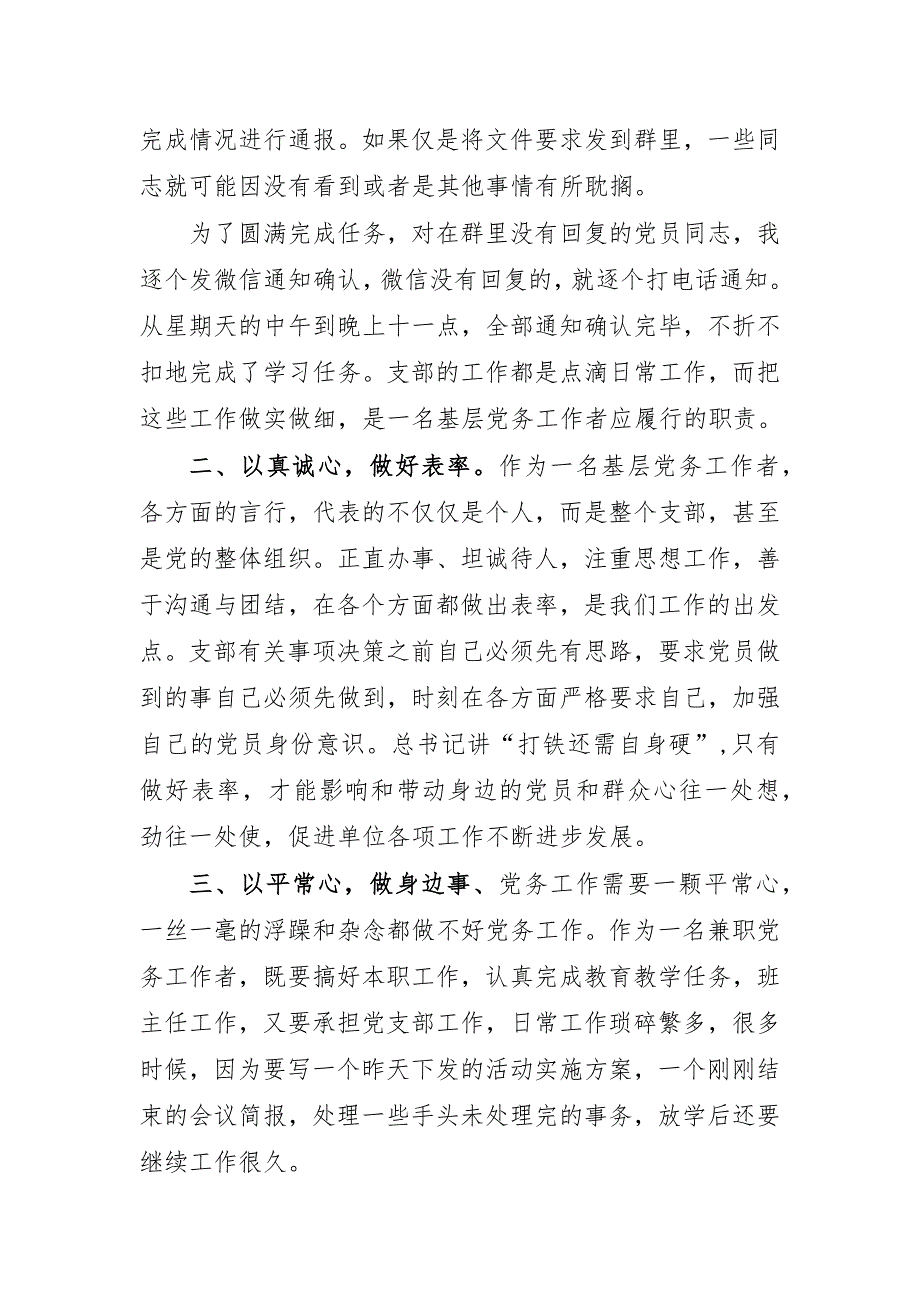 完成情况进行通报。如果仅是将文件要求发到群里，一些同
志就可能因没有看到或者是其他事情有所耽搁。
为了圆满完成任务，对在群里没有回复的党员同志，我
逐个发微信通知确认，微信没有回复的，就逐个打电话通知。
从星期天的中午到晚上十一点，全部通知确认完毕，不折不
扣地完成了学习任务。支部的工作都是点滴日常工作，而把
这些工作做实做细，是一名基层党务工作者应履行的职责。
二、以真诚心，做好表率。作为一名基层党务工作者，
各方面的言行，代表的不仅仅是个人，而是整个支部，甚至
是党的整体组织。正直办事、坦诚待人，注重思想工作，善
于沟通与团结，在各个方面都做出表率，是我们工作的出发
点。支部有关事项决策之前自己必须先有思路，要求党员做
到的事自己必须先做到，时刻在各方面严格要求自己，加强
自己的党员身份意识。总书记讲“打铁还需自身硬”,只有
做好表率，才能影响和带动身边的党员和群众心往一处想，
劲往一处使，促进单位各项工作不断进步发展。
三、以平常心，做身边事、党务工作需要一颗平常心，
一丝一毫的浮躁和杂念都做不好党务工作。作为一名兼职党
务工作者，既要搞好本职工作，认真完成教育教学任务，班
主任工作，又要承担党支部工作，日常工作琐碎繁多，很多
时候，因为要写一个昨天下发的活动实施方案，一个刚刚结
束的会议简报，处理一些手头未处理完的事务，放学后还要
继续工作很久。